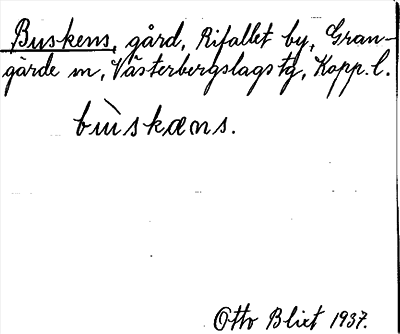 Buskens, gård, Rifallet by, Gran-
gärde sn, Västerbergslags tg, Kopp. l.
bùskæns.
Otto Blixt 1937.